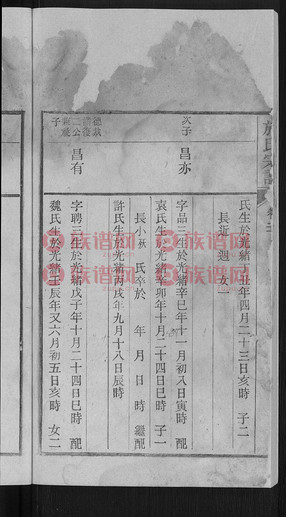 氏生於光緒丑年四月二十三日亥時 子二
長遊 週 女一
次子 昌亦
字品三生於光緒辛巳年十一月初八日寅時 配
袁氏生於光緒辛卯年十月二十四日巳時 子一
長小 氏卒於 年 月 日 時 繼配
許氏生於光緒丙戌年九月十八日辰時
昌有
字聘三生於光緒戊子年十月二十四日巳時 配
魏氏生於光緒壬辰年又六月初五日亥時 女二
族谱网